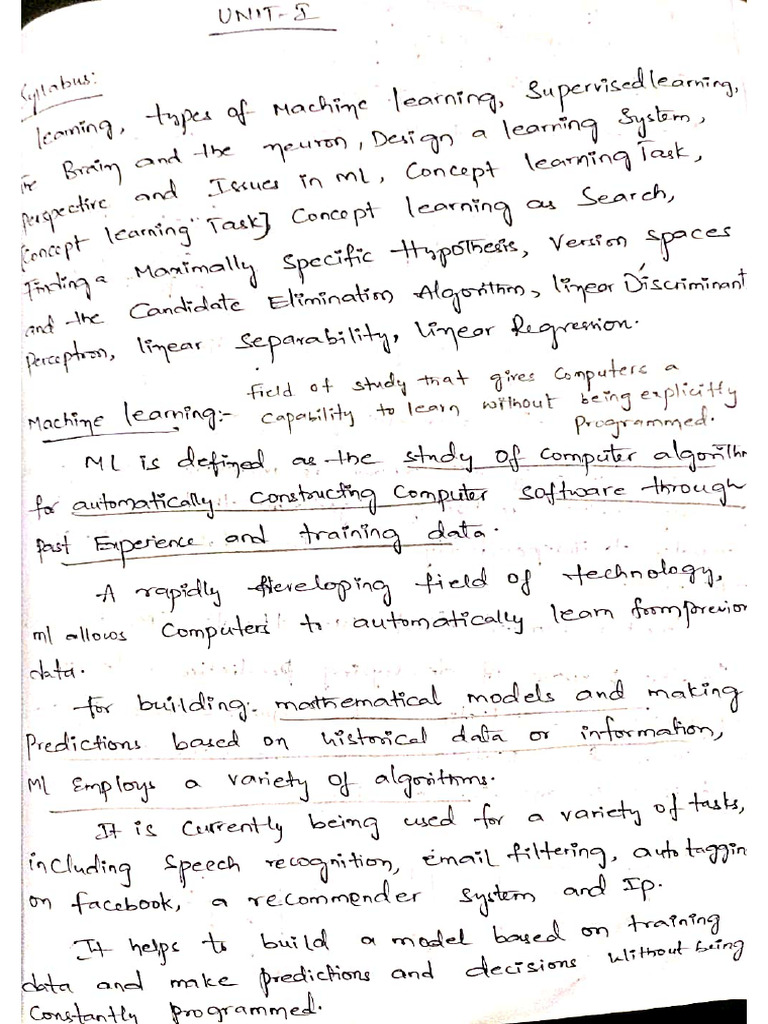 UNIT-I
Syllabus:
learning, types of Machine learning, Supervised learning,
Brain and the neuron, Design a learning System,
perspective and Issues in ML, Concept learning Task,
[Concept learning Task] Concept learning as Search,
Finding a Maximally Specific Hypothesis, Version Spaces
and the Candidate Elimination Algorithm, linear Discriminant
Perceptron, linear Separability, linear Regression.
Machine learning:- field of study that gives computers a
capability to learn without being explicitly
programmed.
ML is defined as the study of computer algorithm
for automatically constructing computer software through
past Experience and training data.
A rapidly developing field of technology,
ml allows computers to automatically learn from previou
data.
for building mathematical models and making
Predictions based on historical data or information,
ML Employs a variety of algorithms.
It is currently being used for a variety of tasks,
including speech recognition, email filtering, auto taggin
on facebook, a recommender system and Ip.
It helps to build a model based on training
data and make predictions and decisions without being
constantly programmed.